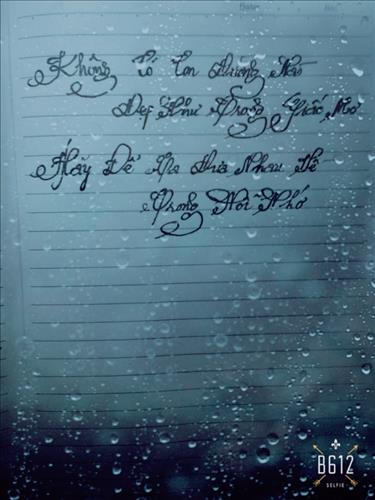 Không Có Con Đường Nào
Đẹp Như Trong Giấc Mơ
Hãy Để Ta Đưa Nhau Về
Trong Nỗi Nhớ
B612
SELFIE